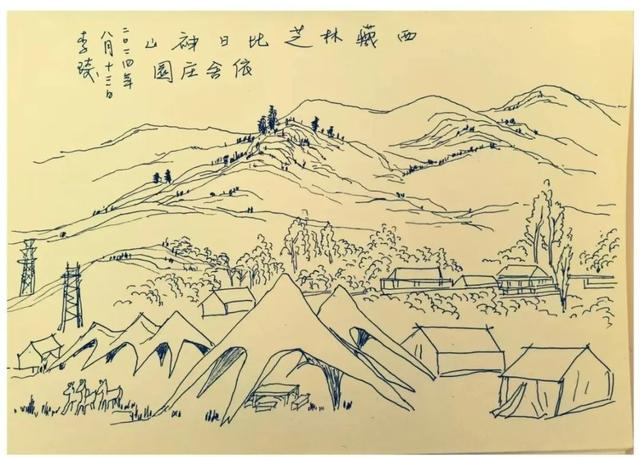 西藏林芝比日神山
依舍庄園
二〇二四年
八月十三日
李琦